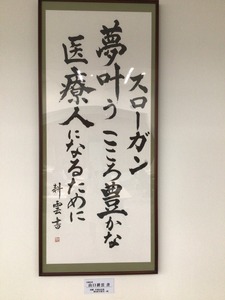 スローガン
夢叶う こころ豊かな
医療人になるために